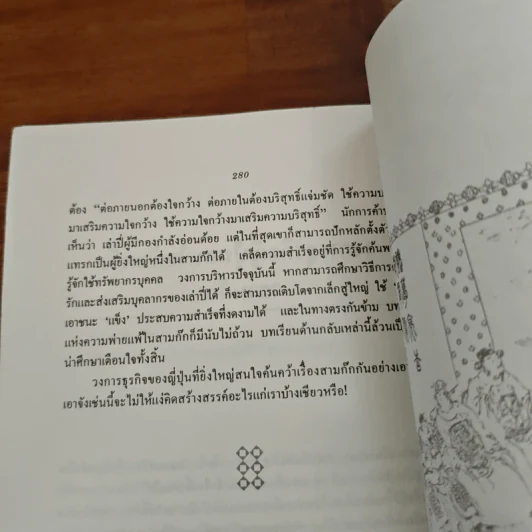 280
ต้อง “ต่อภายนอกต้องใจกว้าง ต่อภายในต้องบริสุทธิ์แจ่มชัด ใช้ความบ
มาเสริมความใจกว้าง ใช้ความใจกว้างมาเสริมความบริสุทธิ์” นักการค้า
เห็นว่า เล่าปี่ผู้มีกองกำลังอ่อนด้อย แต่ในที่สุดเขาก็สามารถปักหลักตั้งตั
แทรกเป็นผู้ยิ่งใหญ่หนึ่งในสามก๊กได้ เคล็ดความสำเร็จอยู่ที่การรู้จักค้นพ
รู้จักใช้ทรัพยากรบุคคล วงการบริหารปัจจุบันนี้ หากสามารถศึกษาวิธีการ
รักและส่งเสริมบุคลากรของเล่าปี่ได้ ก็จะสามารถเติบโตจากเล็กสู่ใหญ่ ใช้
เอาชนะ ‘แข็ง’ ประสบความสำเร็จที่งดงามได้ และในทางตรงกันข้าม บท
แห่งความพ่ายแพ้ในสามก๊กก็มีนับไม่ถ้วน บทเรียนด้านกลับเหล่านี้ล้วนเป็
น่าศึกษาเตือนใจทั้งสิ้น
วงการธุรกิจของญี่ปุ่นที่ยิ่งใหญ่สนใจค้นคว้าเรื่องสามก๊กกันอย่างเอา
เอาจังเช่นนี้จะไม่ให้แง่คิดสร้างสรรค์อะไรแก่เราบ้างเชียวหรือ!